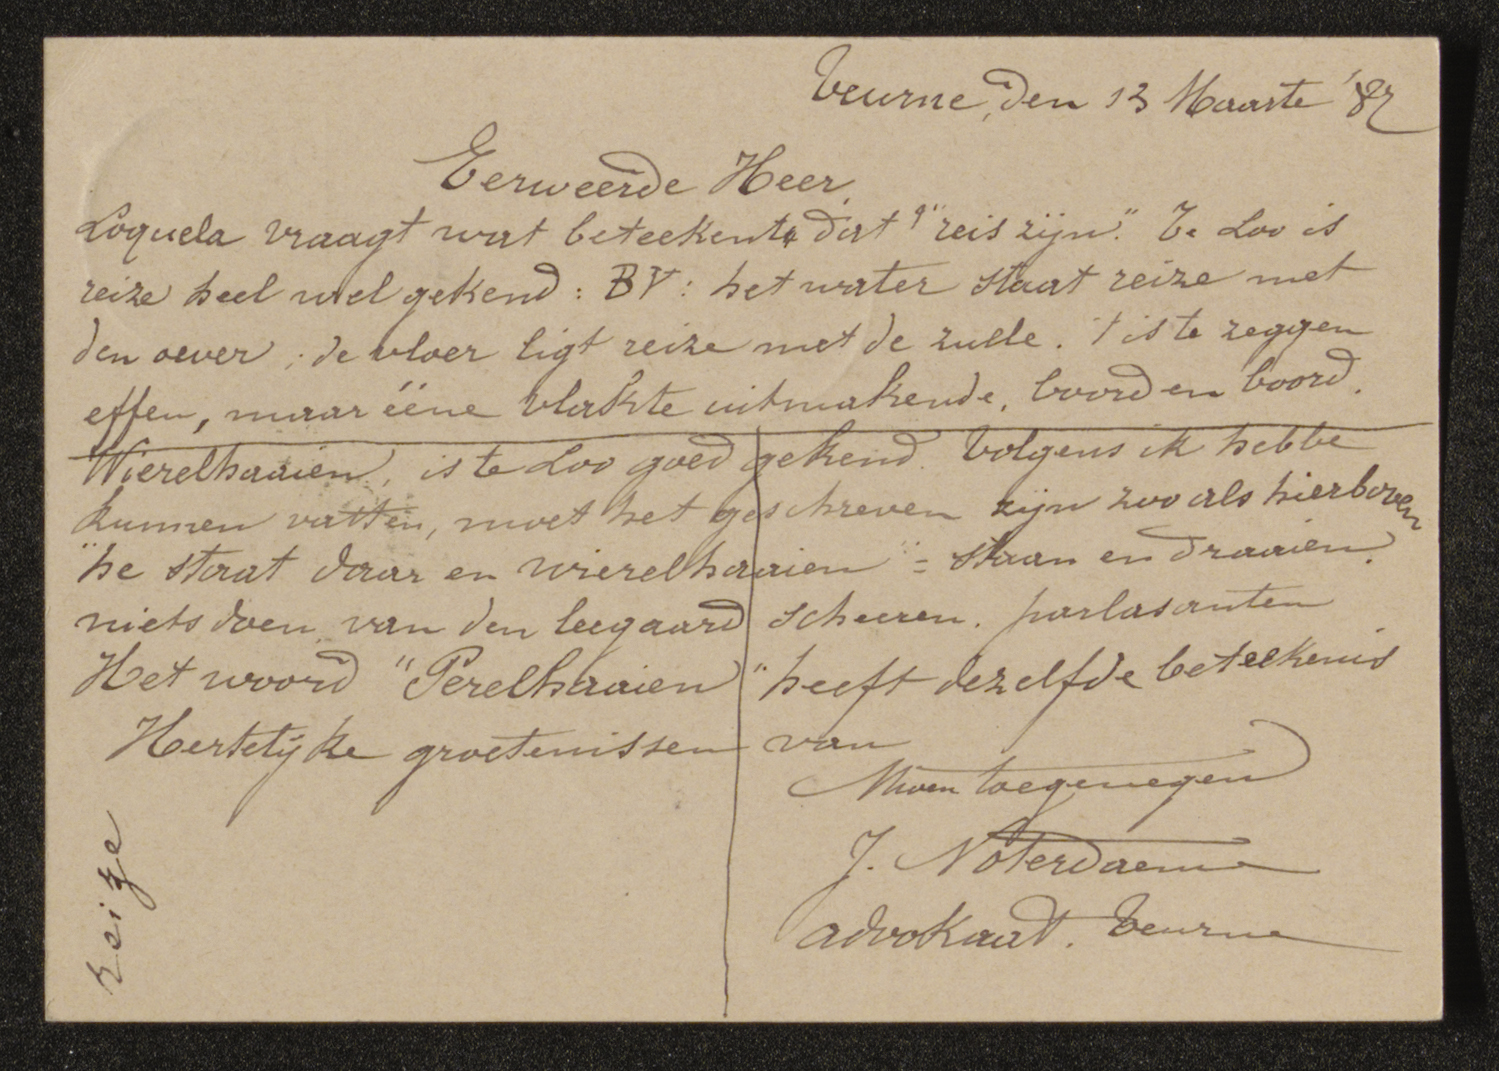 Veurne, den 13 Maarte '87
Eerweerde Heer,
Loquela vraagt wat beteekent dat "reis zijn". Te Loo is
reize heel wel gekend : BV : het water staat reize met
den oever ; de vloer ligt reize met de zulle. 't is te zeggen
effen, maar ééne vlakte uitmakende, boord en boord.
Wierelhaaien, is te Loo goed gekend. Volgens ik hebbe
kunnen vatten, moet het geschreven zijn zoo als hierboven
"he staat daar en wierelhaaien" = staan en draaien.
niets doen, van den leegaard scheeren. parlasanten
Het woord "Perelhaaien" heeft dezelfde beteekenis
Hertelijke groetenissen van
Uwen toegenegen
J. Noterdaeme
advokaat. Veurne
reize